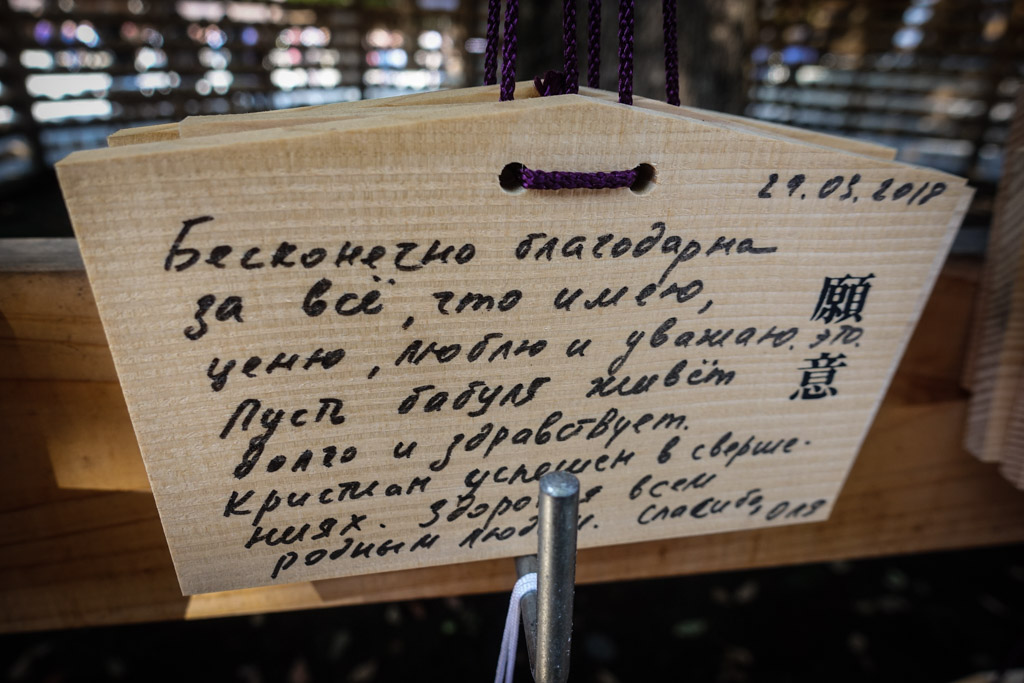 29.03.2018
Бесконечно благодарна
за всё, что имею,
ценю, люблю и уважаю. это.
Пусть бабуля живёт
долго и здравствует.
Кристиан успешен в сверше-
ниях. Здоровья всем
родным людям. спасибо, Оля
願
意